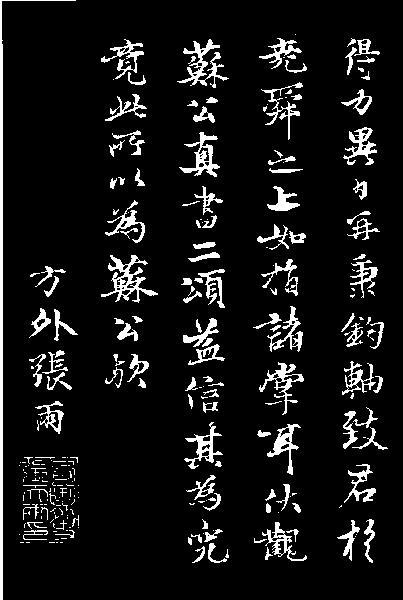 得力異日再秉鈞軸致君於
堯舜之上如指諸掌耳伏觀
蘇公真書二頌益信其為究
竟此所以為蘇公欤
方外張雨